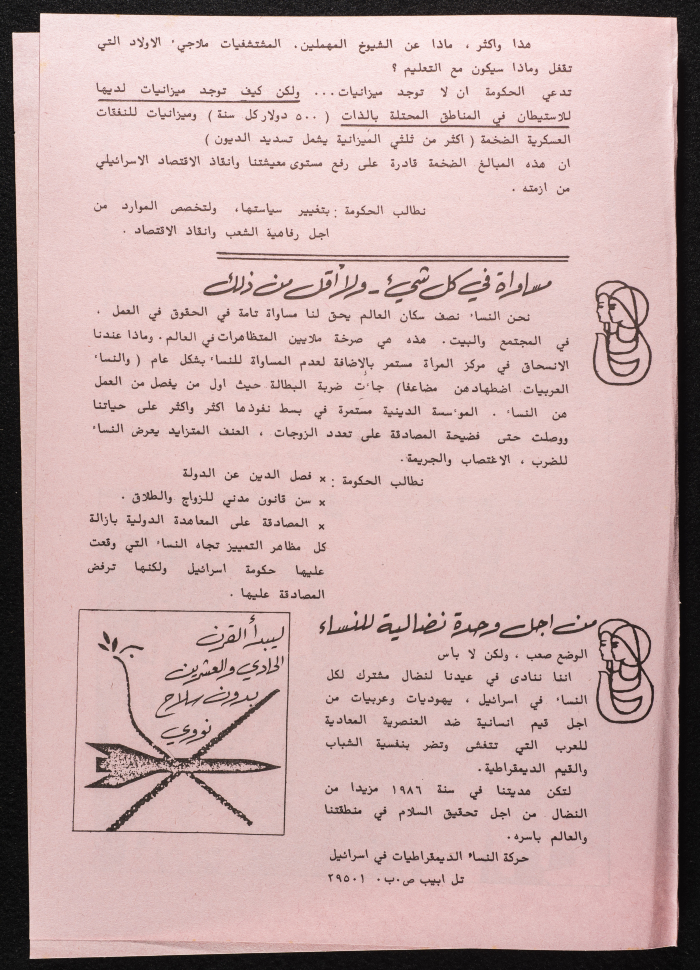 هذا واكثر ، ماذا عن الشيوخ المهملين، المشتشفيات ملاجيء الاولاد التي
تقفل وماذا سيكون مع التعليم ؟
تدعي الحكومة ان لا توجد ميزانيات... ولكن كيف توجد ميزانيات لديها
للاستيطان في المناطق المحتلة بالذات ( ٥٠٠ دولار كل سنة ) وميزانيات للنفقات
العسكرية الضخمة ( اكثر من ثلثي الميزانية يشمل تسديد الديون )
ان هذه المبالغ الضخمة قادرة على رفع مستوى معيشتنا وانقاذ الاقتصاد الاسرائيلي
من ازمته .
نطالب الحكومة : بتغيير سياستها، ولتخصص الموارد من
اجل رفاهية الشعب وانقاذ الاقتصاد .
مساواة في كل شيء - ولا أقل من ذلك
نحن النساء نصف سكان العالم يحق لنا مساواة تامة في الحقوق في العمل ،
في المجتمع والبيت. هذه هي صرخة ملايين المتظاهرات في العالم. وماذا عندنا
الانسحاق في مركز المرأة مستمر بالاضافة لعدم المساواة للنساء بشكل عام ( والنساء
العربيات اضطهادهن مضاعفا) جاءت ضربة البطالة حيث اول من يفصل من العمل
هن النساء . الموءسسة الدينية مستمرة في بسط نفوذها اكثر واكثر على حياتنا
ووصلت حتى فضيحة المصادقة على تعدد الزوجات ، العنف المتزايد يعرض النساء
للضرب ، الاغتصاب والجريمة.
نطالب الحكومة : × فصل الدين عن الدولة
× سن قانون مدني للزواج والطلاق .
× المصادقة على المعاهدة الدولية بازالة
كل مظاهر التمييز تجاه النساء التي وقعت
عليها حكومة اسرائيل ولكنها ترفض
المصادقة عليها .
من اجل وحدة نضالية للنساء
الوضع صعب ، ولكن لا باس
اننا ننادى في عيدنا لنضال مشترك لكل
النساء في اسرائيل ، يهوديات وعربيات من
اجل قيم انسانية ضد العنصرية المعادية
للعرب التي تتفشى وتضر بنفسية الشباب
والقيم الديمقراطية.
لتكن هديتنا في سنة ١٩٨٦ مزيدا من
النضال من اجل تحقيق السلام في منطقتنا
والعالم باسره.
حركة النساء الديمقراطيات في اسرائيل
تل ابيب ص.ب. ٢٩٥٠١
ليبدأ القرن
الحادي والعشرين
بدون سلاح
نووي